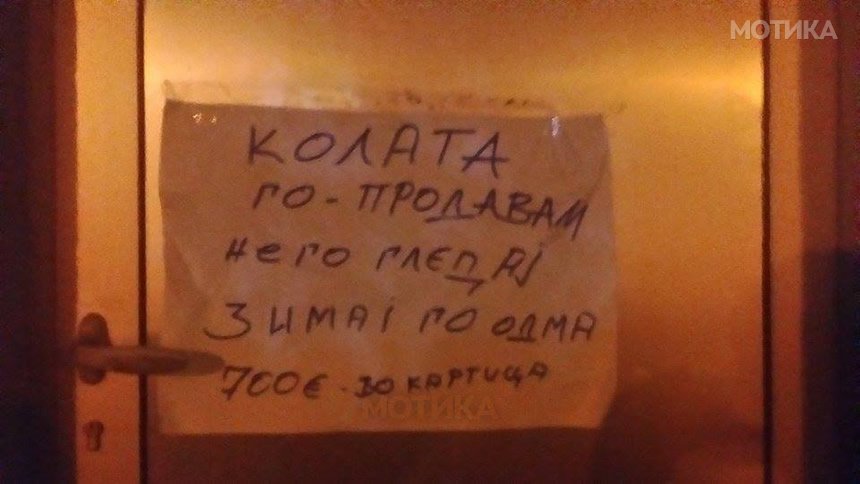 МОТИКА
КОЛАТА
ГО-ПРОДАВАМ
НЕГО ГЛЕДАЈ
ЗИМАЈ ГО ОДМА
700€-ВО КАРТИЦА
МОТИКА